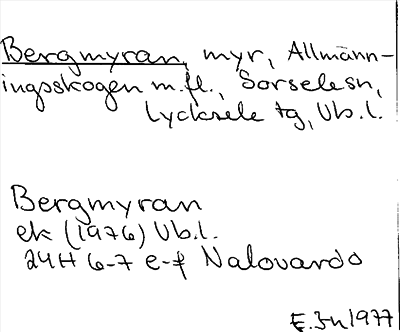 Bergmyran, myr, Allmänn-
ingsskogen m.fl., Sorselesn,
Lycksele tg, Vb.l.
Bergmyran
ek (1976) Vb.l.
24H 6-7 e-f Nalovardo
1977